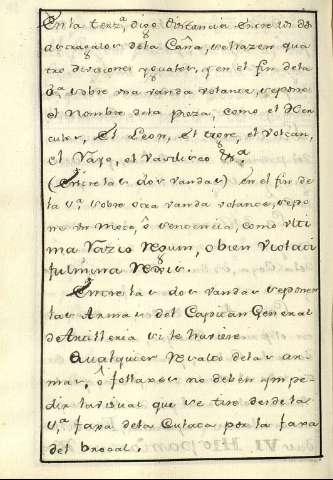 En la terz.ª digo distancia entre los dos
astragalos dela Caña, se hazen qua
tro divisiones yguales, y en el fin dela
3.ª sobre una vanda volante, se pone
el nombre dela pieza, como el Her
cules, El Leon, El tigre, el Volcan,
el Rayo, el Vasilisco &.ª
(Entre las dos vandas) en el fin de
la 1.ª sobre otra vanda volante, se po
ne un Mote, ô sentencia, como Vlti
ma Razio Regum, o bien Violati
fulmina Regis.
Entre las dos vandas se ponen
las Armas del Capitan General
de Artilleria si le huviere.
Qualquier Resalto delas ar
mas, ô follages no deben ympe
dir la visual que se tire desde la
1.ª faxa dela Culata por la faxa
del brocal.